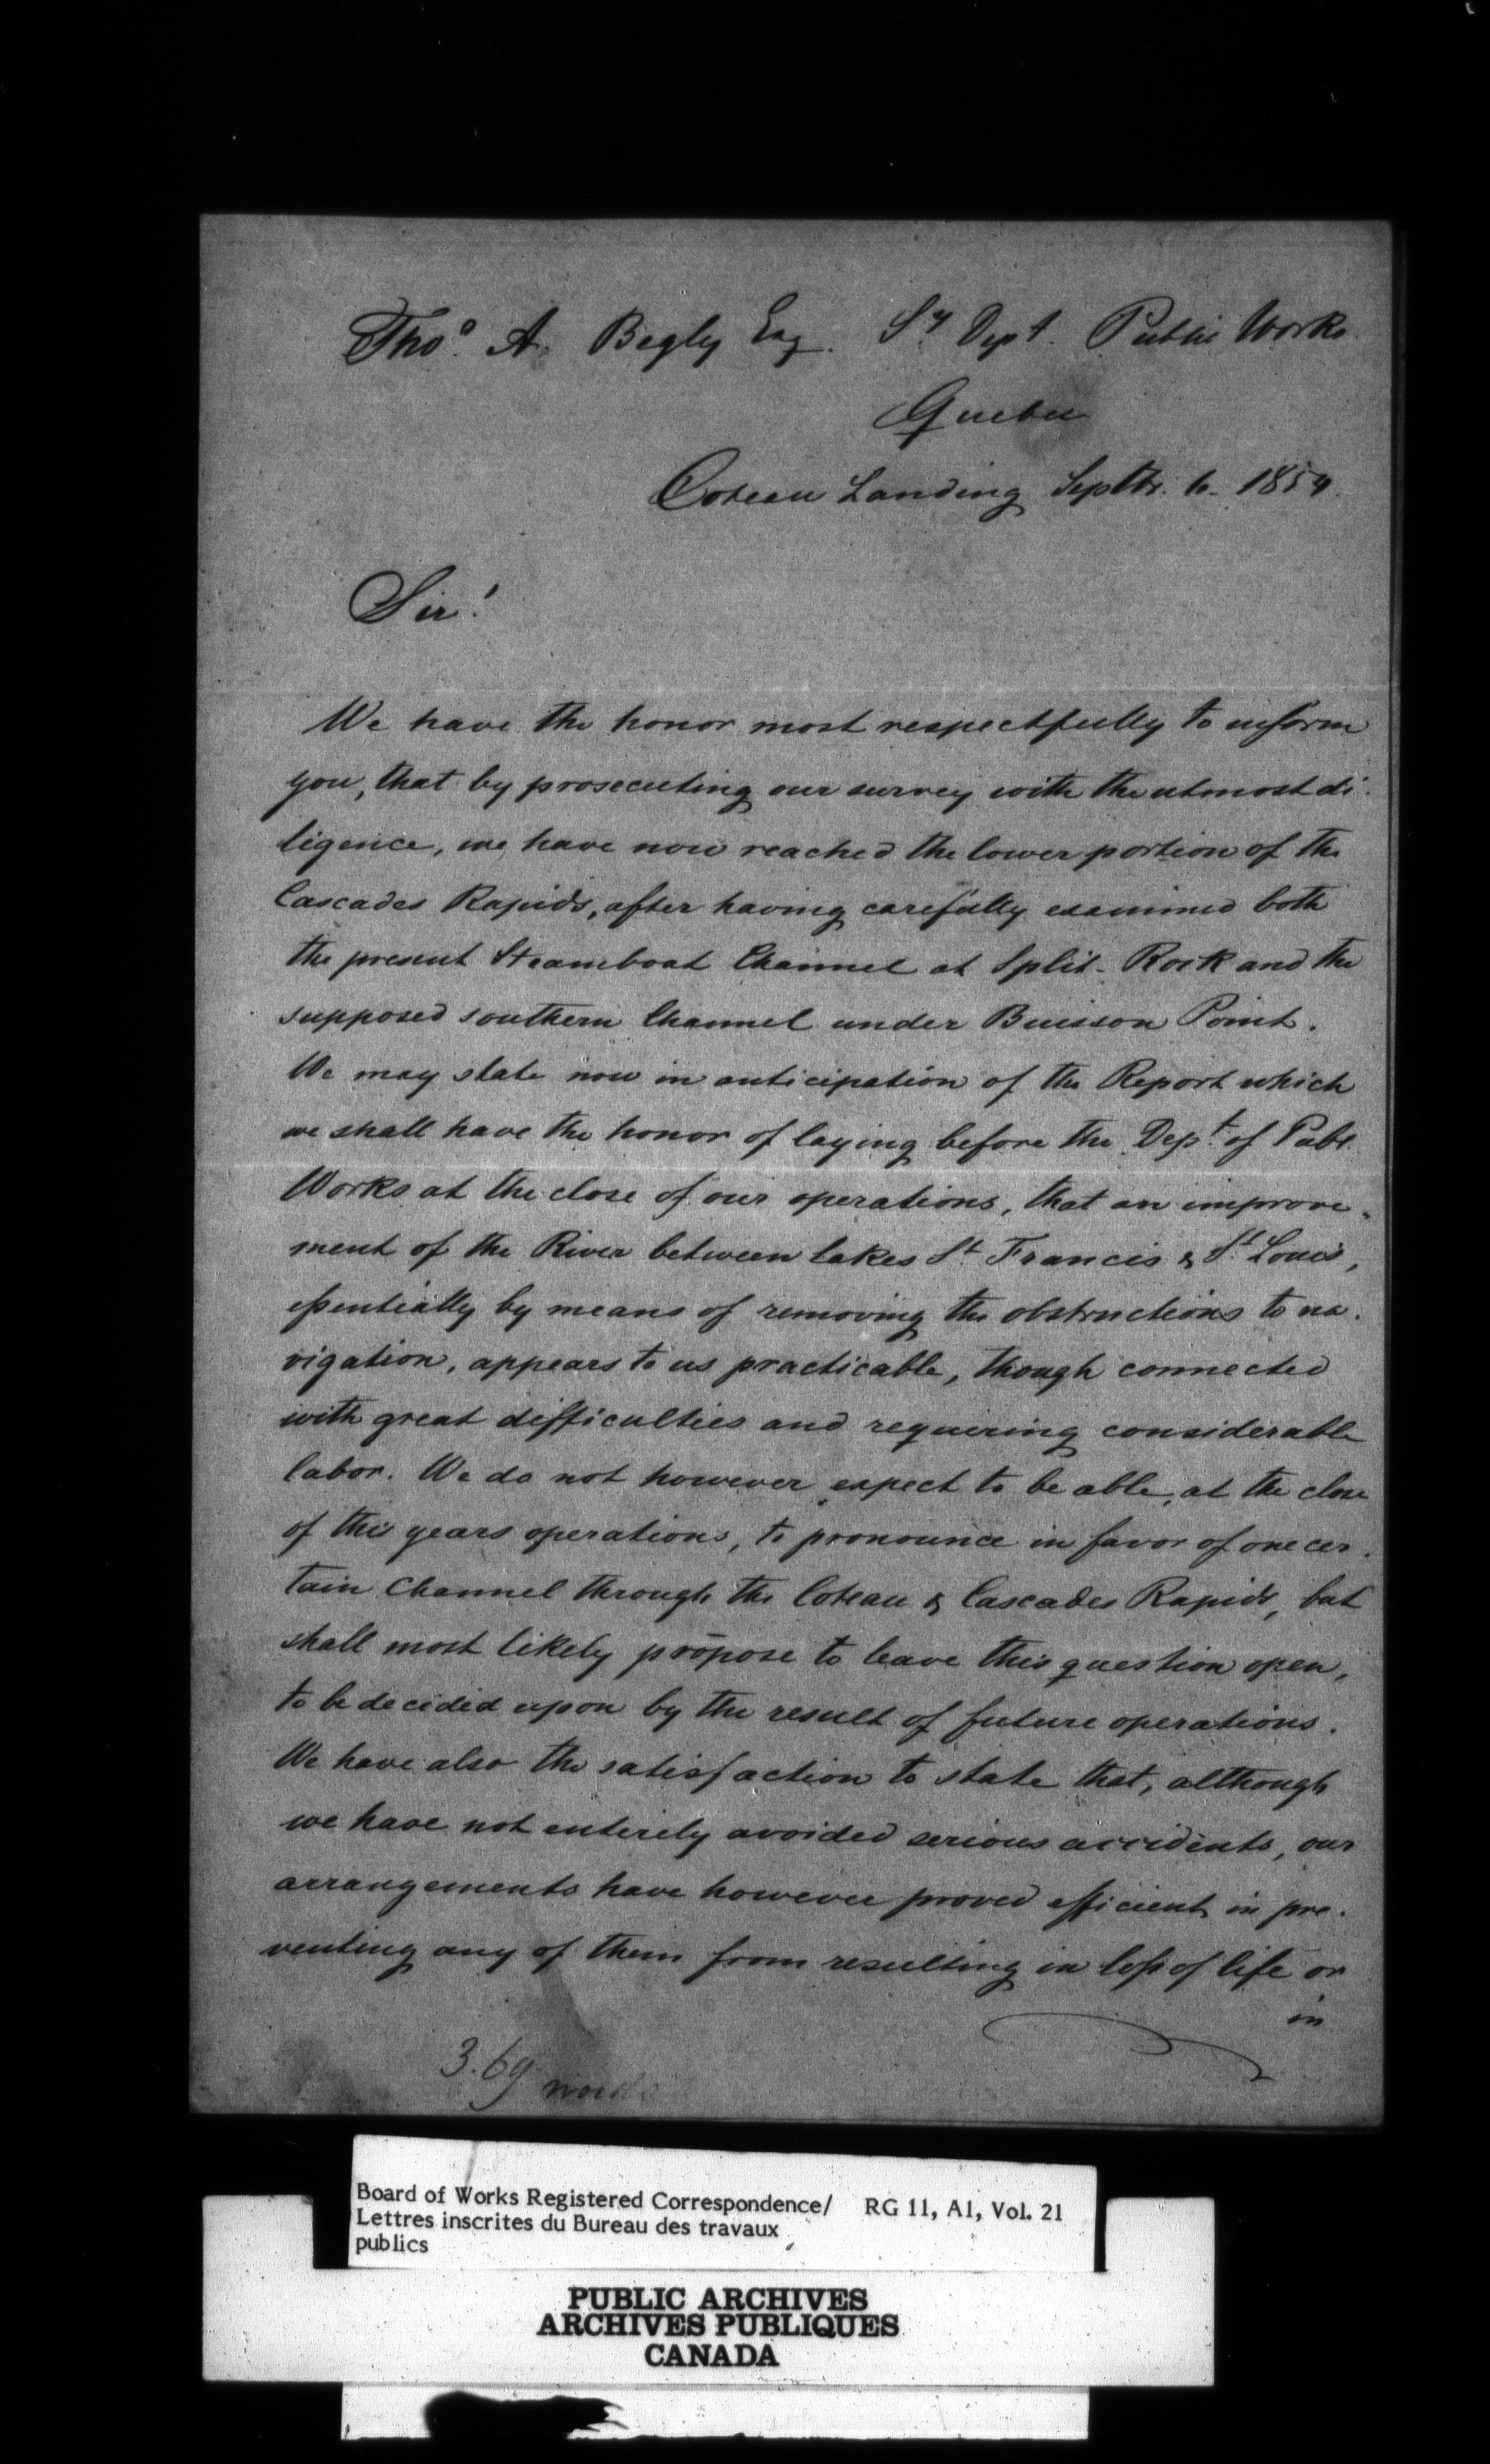 Thos. A. Begly Esq. Sy Dept. Public Works.
Quebec
Coteau Landing Septbr. 6. 1854.
Sir!
We have the honor most respectfully to inform
you, that by prosecuting our survey with the utmost di-
ligence, we have now reached the lower portion of the
Cascades Rapids, after having carefully examined both
the present Steamboat Channel at Split-Rock and the
supposed southern Channel under Buisson Point.
We may state now in anticipation of the Report which
we shall have the honor of laying before the Dept. of Publ.
Works at the close of our operations, that an improve-
ment of the River between lakes St. Francis & St. Louis,
essentially by means of removing the obstructions to na-
vigation, appears to us practicable, though connected
with great difficulties and requiring considerable
labor. We do not however expect to be able, at the close
of this years operations, to pronounce in favor of one cer-
tain Channel through the Coteau & Cascades Rapids, but
shall most likely propose to leave this question open,
to be decided upon by the result of future operations.
We have also the satisfaction to state that, although
we have not entirely avoided serious accidents, our
arrangements have however proved efficient in pre-
venting any of them from resulting in loss of life or
in
3.69 words
Board of Works Registered Correspondence/ RG 11, A1, Vol. 21
Lettres inscrites du Bureau des travaux
publics
PUBLIC ARCHIVES
ARCHIVES PUBLIQUES
CANADA